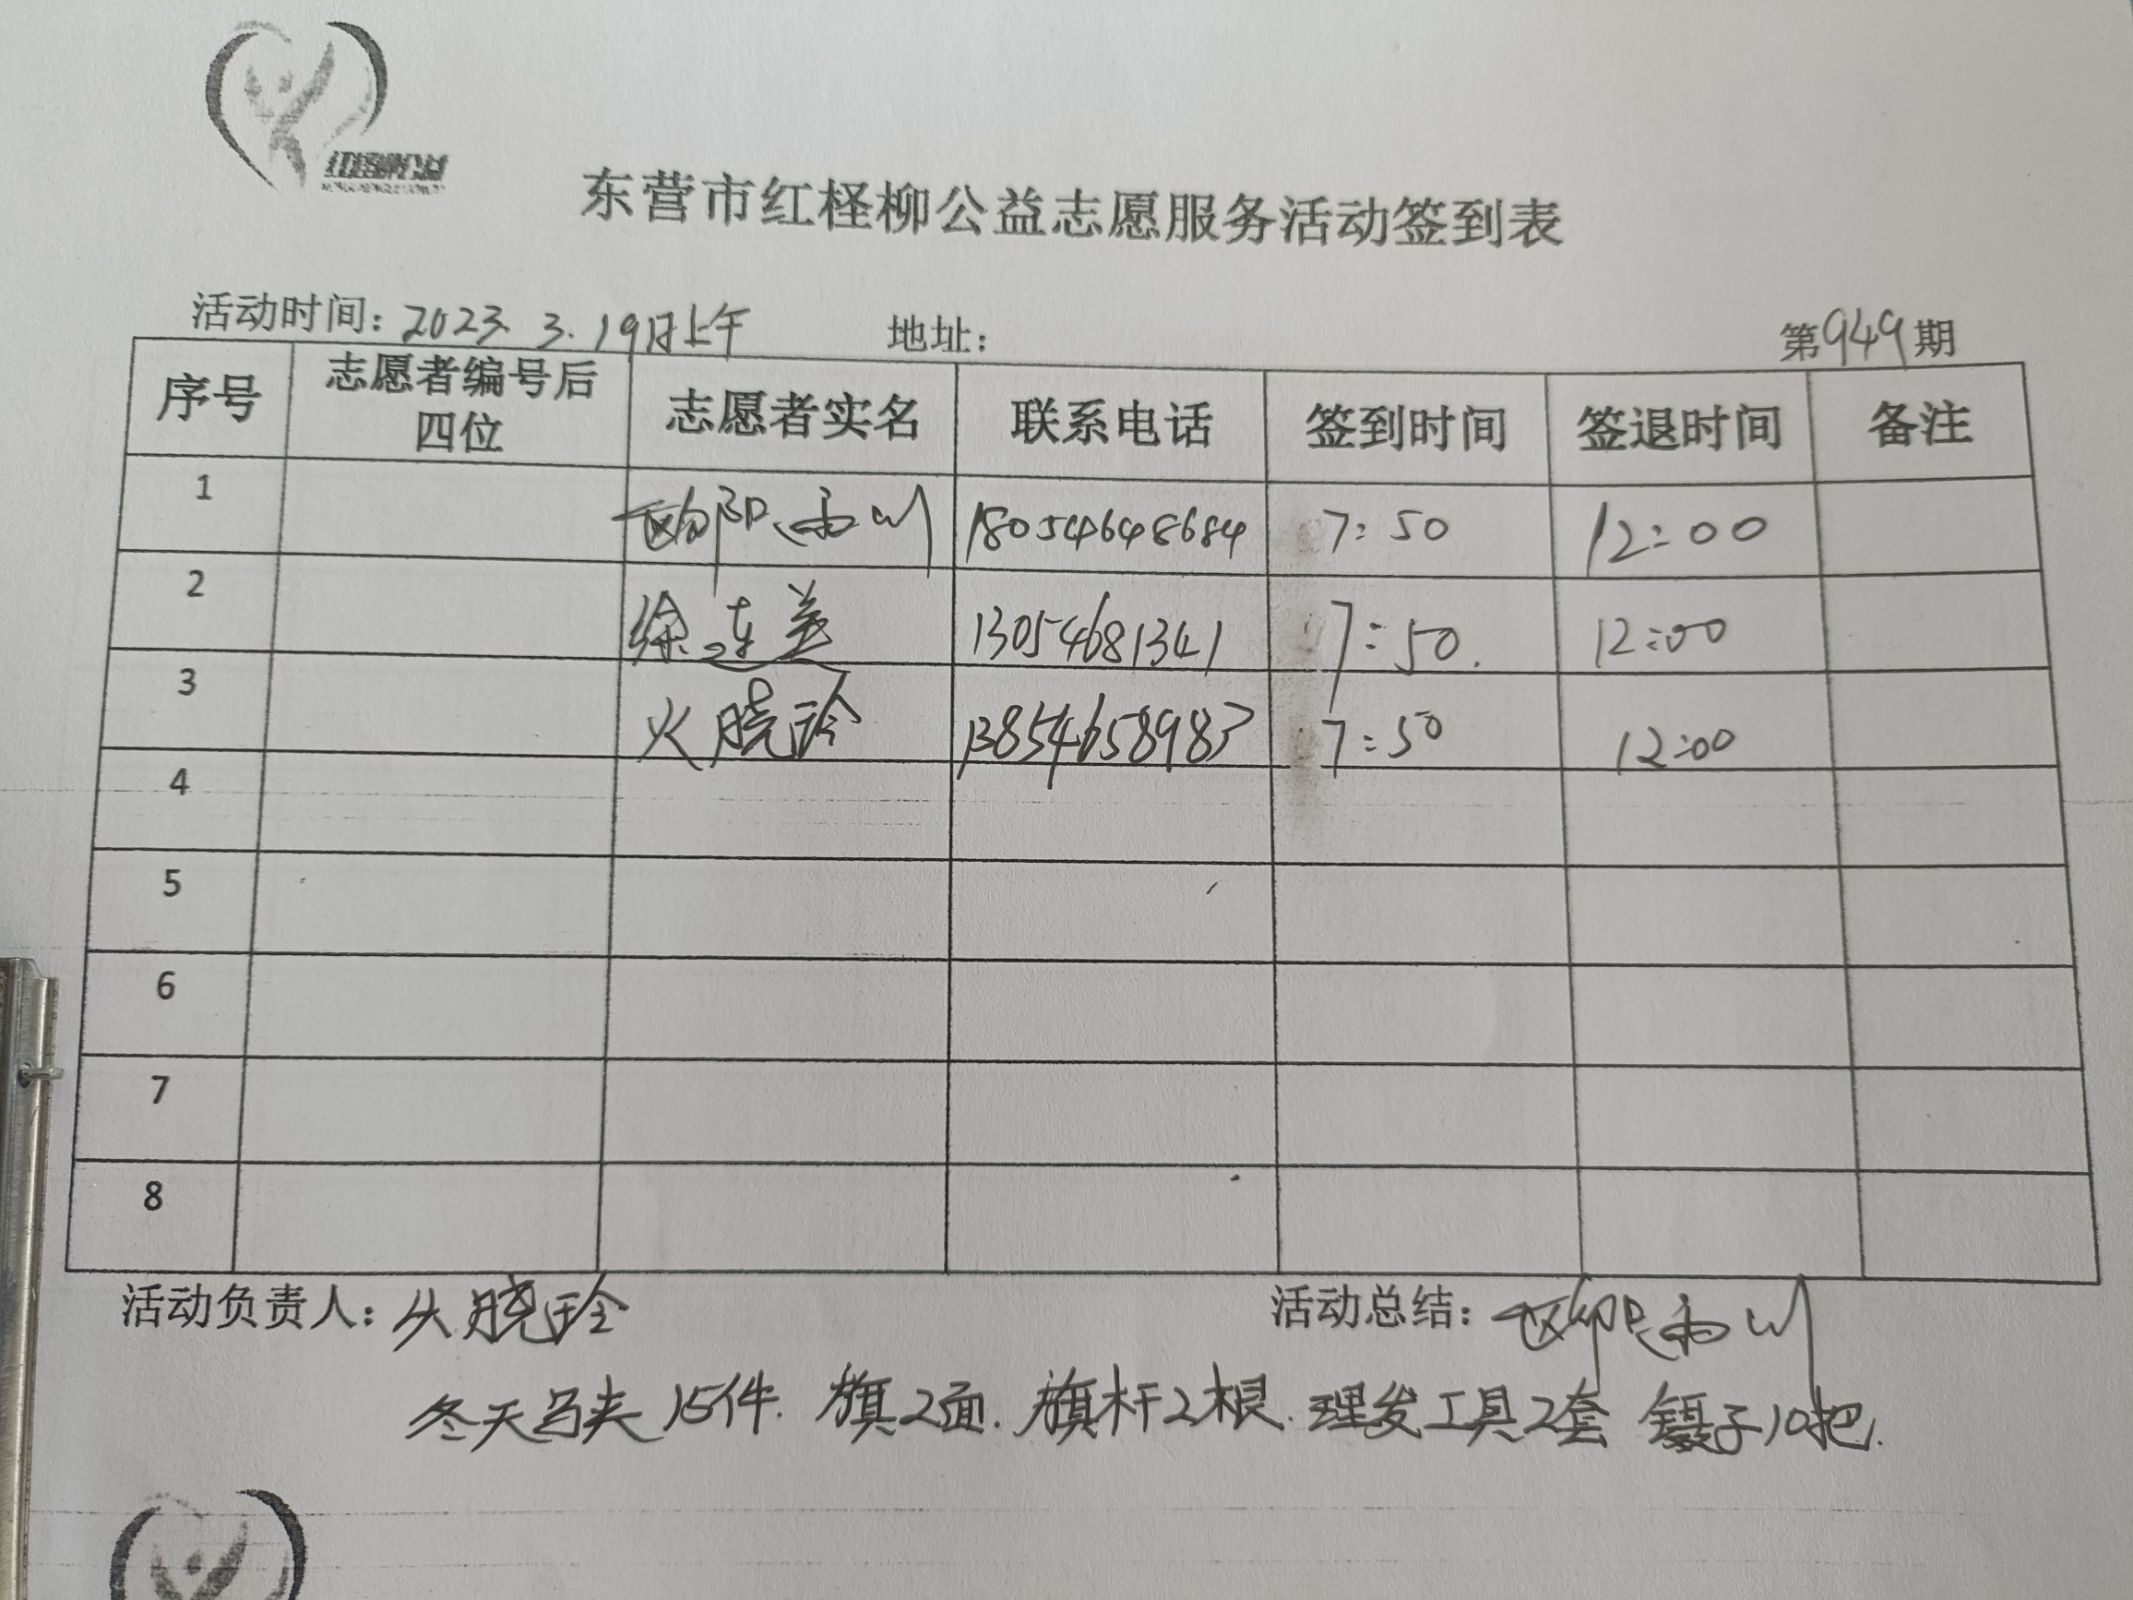 红柽柳公益
东营市红柽柳公益志愿服务活动签到表
活动时间: 2023. 3. 19日上午 地址: 第949期
序号 志愿者编号后四位 志愿者实名 联系电话 签到时间 签退时间 备注
1 欧阳丽川 18054648684 7:50 12:00
2 徐连美 13054681341 7:50. 12:00
3 火晓玲 13854658983 7:50 12:00
4
5
6
7
8
活动负责人: 火晓玲 活动总结: 欧阳丽川
冬天马夹15件. 旗2面. 旗杆2根. 理发工具2套 镊子10把.